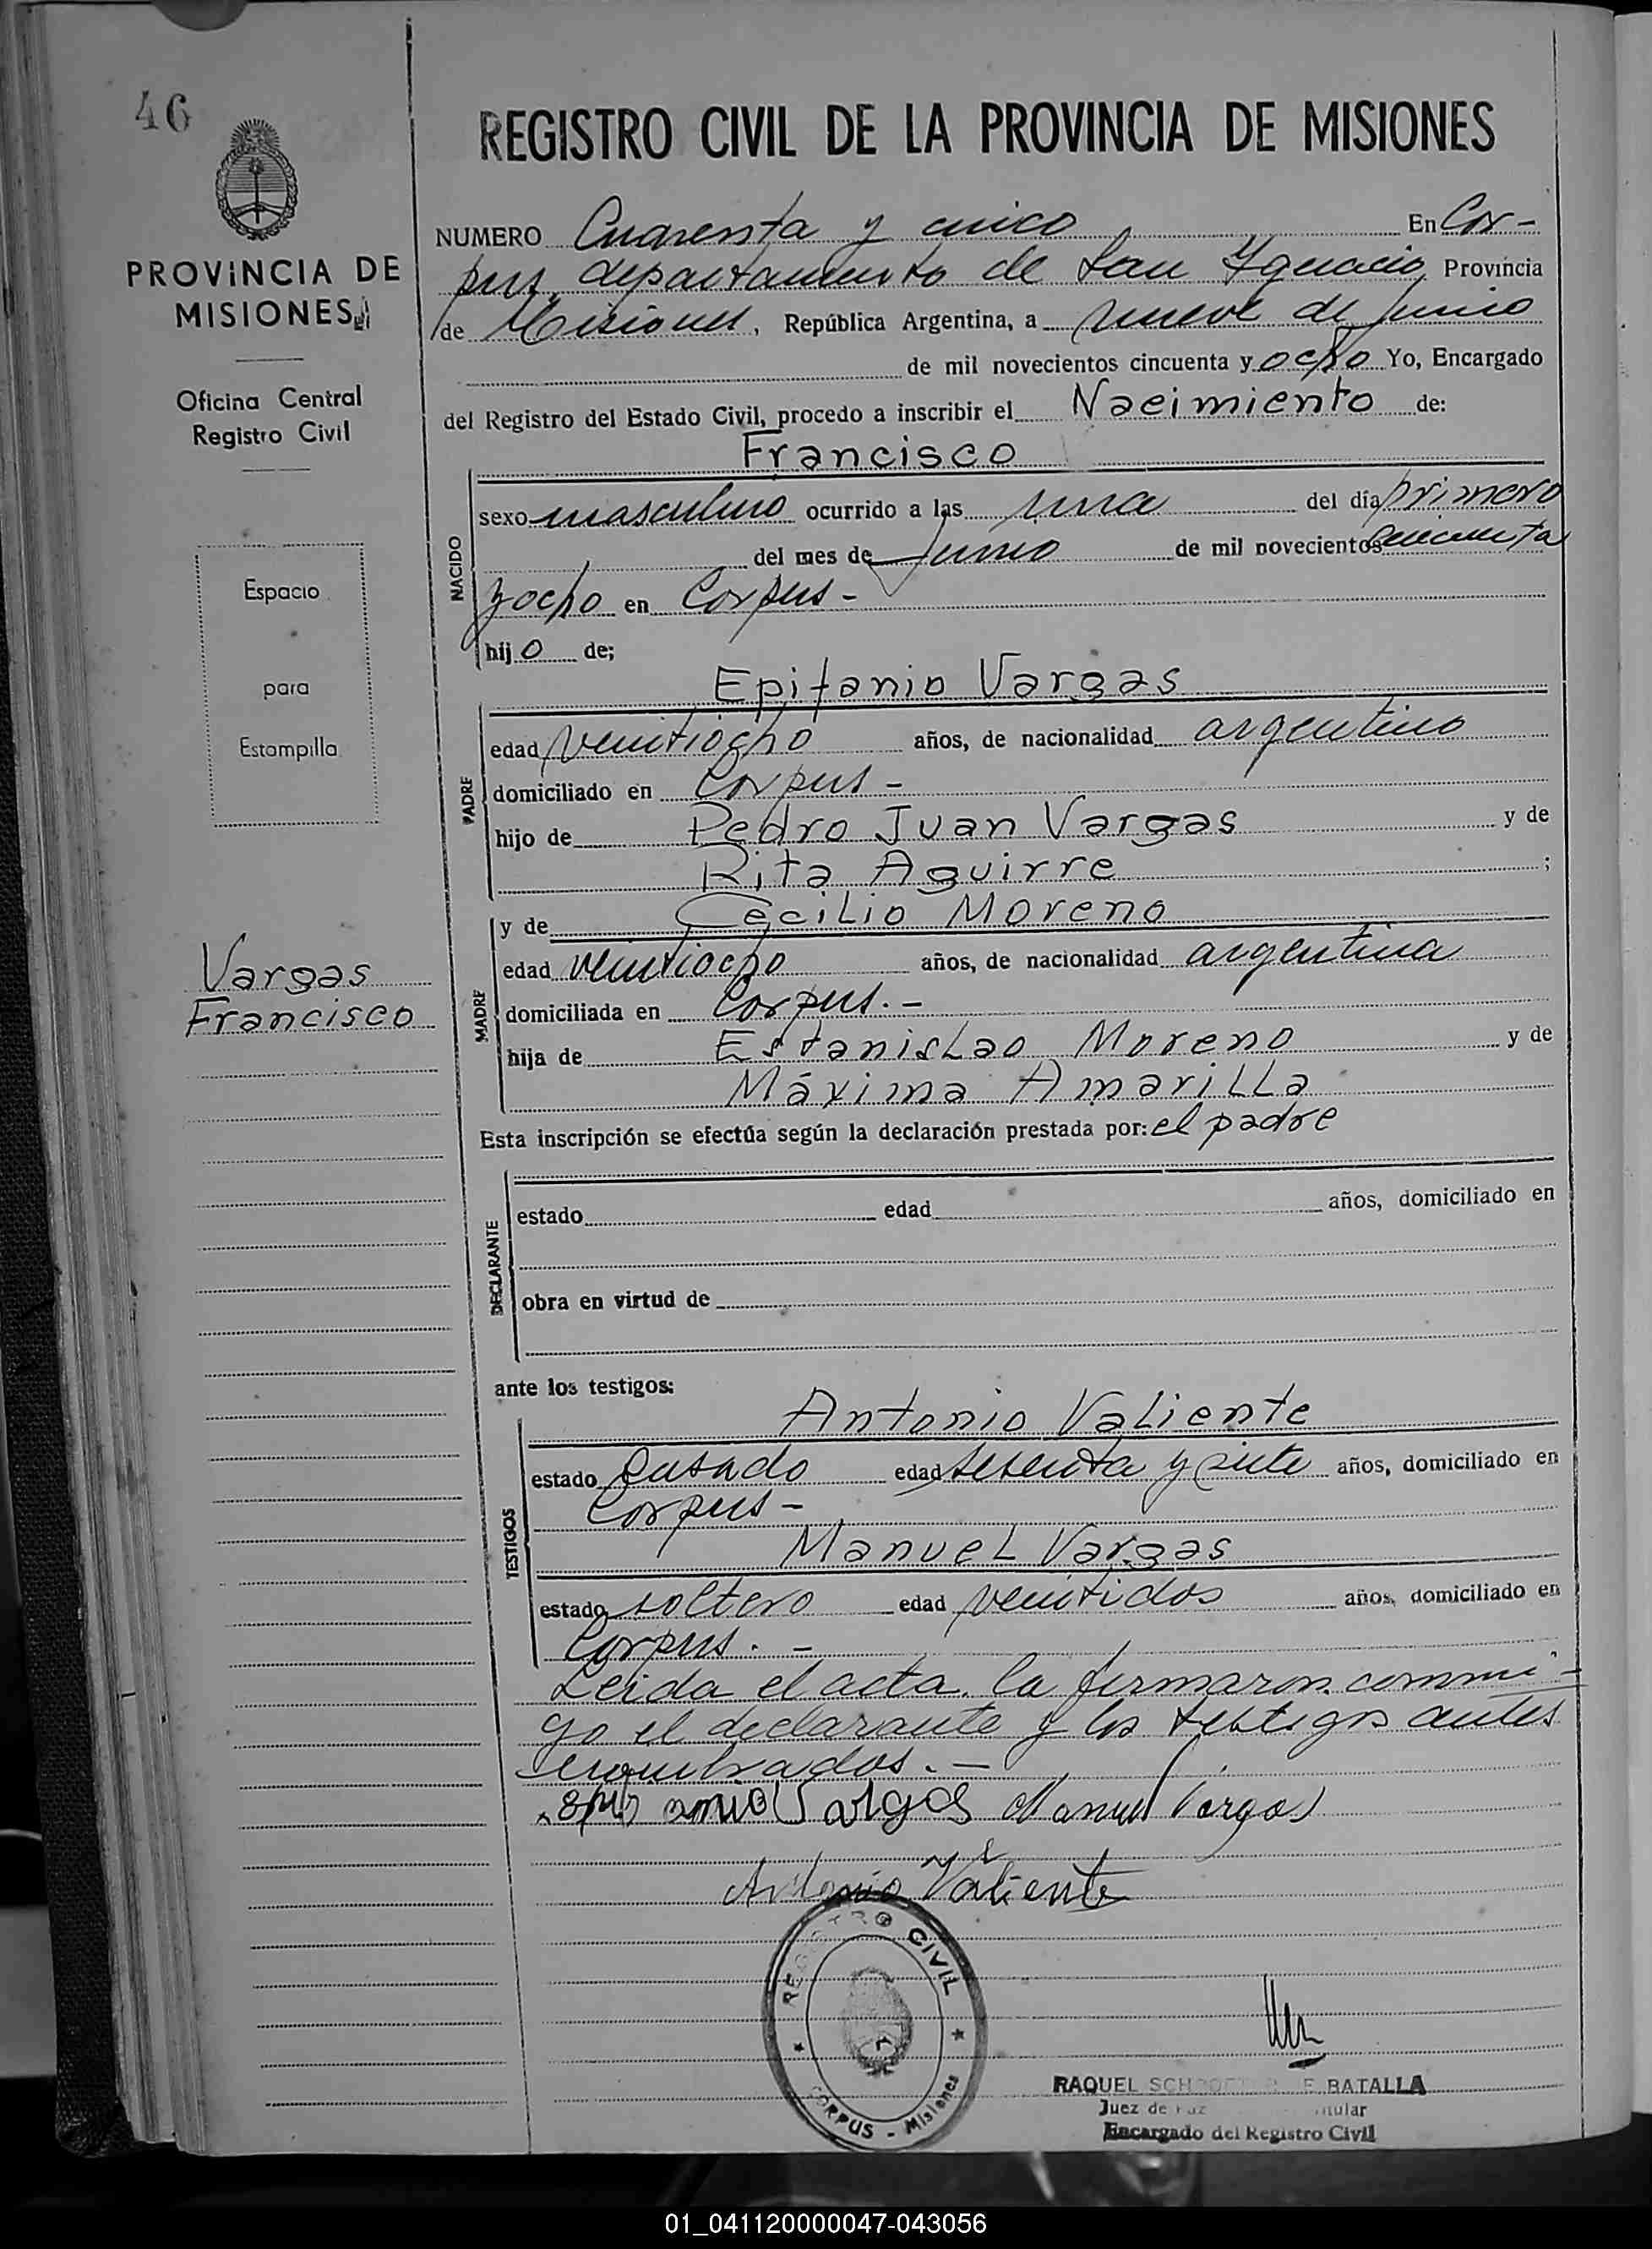 46
PROVINCIA DE
MISIONES
Oficina Central
Registro Civil
Espacio
para
Estampilla
Vargas
Francisco
REGISTRO CIVIL DE LA PROVINCIA DE MISIONES
NUMERO Cuarenta y cinco En Cor-
pus, departamento de San Ygnacio, Provincia
de Misiones, República Argentina, a nueve de junio
de mil novecientos cincuenta y ocho Yo, Encargado
del Registro del Estado Civil, procedo a inscribir el Nacimiento de:
Francisco
NACIDO
sexo masculino ocurrido a las una del día primero
del mes de Junio de mil novecientos cincuenta
y ocho en Corpus-
hijo de;
PADRE
Epifanio Vargas
edad veintiocho años, de nacionalidad argentino
domiciliado en Corpus-
hijo de Pedro Juan Vargas y de
Rita Aguirre ;
MADRE
y de Cecilio Moreno
edad veintiocho años, de nacionalidad argentina
domiciliada en Corpus.-
hija de Estanislao Moreno y de
Máxima Amarilla
Esta inscripción se efectúa según la declaración prestada por: el padre
DECLARANTE
estado edad años, domiciliado en
obra en virtud de
ante los testigos:
TESTIGOS
Antonio Valiente
estado Casado edad sesenta y siete años, domiciliado en
Corpus-
Manuel Vargas
estado soltero edad veintidos años, domiciliado en
Corpus.-
Leida el acta. la firmaron conmi-
go el declarante y los testigos antes
nombrados.-
Vargas Manuel Vargas
Antonio Valiente
REGISTRO CIVIL
CORPUS - Misiones
RAQUEL BATALLA
Juez de Paz
Encargado del Registro Civil
01_041120000047-043056